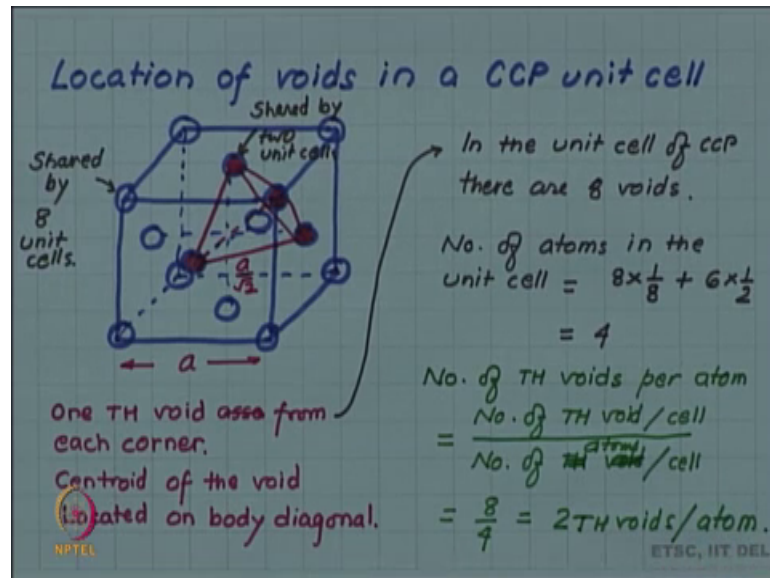 Location of voids in a CCP unit cell
Shared by
two
unit cell
Shared
by
8
unit
cells.
a/√2
a
One TH void asso from
each corner.
Centroid of the void
Located on body diagonal.
In the unit cell of CCP
there are 8 voids.
No. of atoms in the
unit cell = 8×1/8 + 6×1/2
= 4
No. of TH voids per atom
= No. of TH void/cell
No. of TH void atoms/cell
= 8/4 = 2TH voids/atom.
NPTEL
ETSC, IIT DEL